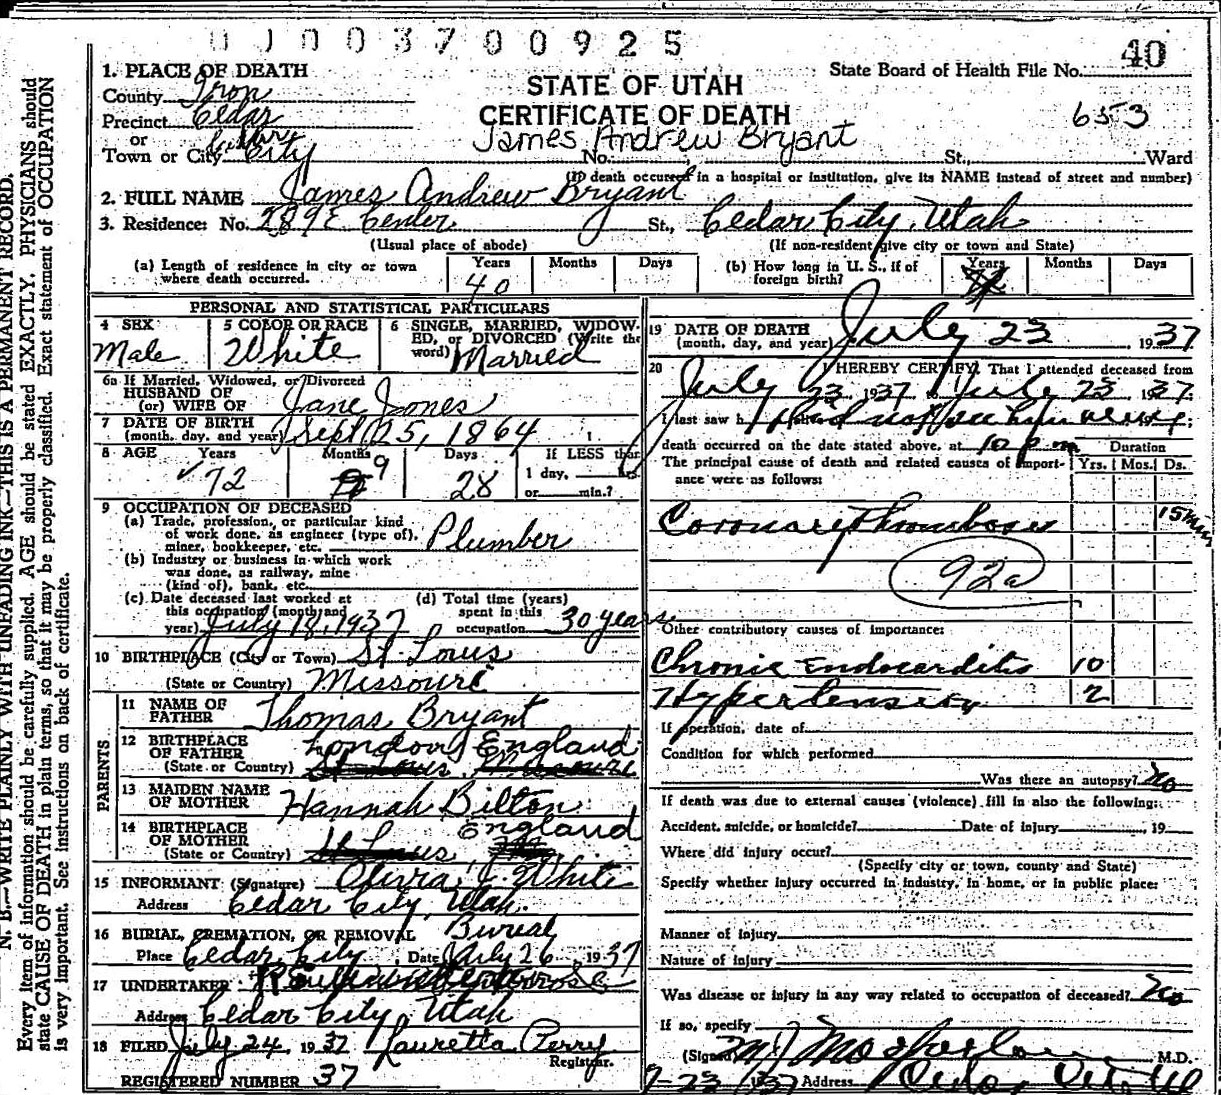 0 1 0 0 3 7 0 0 9 2 5
40
1. PLACE OF DEATH
State Board of Health File No.
County Iron
STATE OF UTAH
Precinct Cedar
CERTIFICATE OF DEATH
653
or
James Andrew Bryant
Town or City City No. St., Ward
(If death occurred in a hospital or institution, give its NAME instead of street and number)
2. FULL NAME James Andrew Bryant
3. Residence: No. 289 E Center St., Cedar City, Utah
(Usual place of abode) (If non-resident give city or town and State)
(a) Length of residence in city or town where death occurred. Years 40 Months Days
(b) How long in U. S., if of foreign birth? Years Months Days
PERSONAL AND STATISTICAL PARTICULARS
4 SEX Male
5 COLOR OR RACE White
6 SINGLE, MARRIED, WIDOWED, or DIVORCED (Write the word) Married
6a If Married, Widowed, or Divorced
HUSBAND OF
(or) WIFE OF Jane Jones
7 DATE OF BIRTH
(month, day, and year) Sept. 25, 1864
8 AGE Years 72 Months 9 Days 28 If LESS than 1 day, hrs. or min.?
9 OCCUPATION OF DECEASED
(a) Trade, profession, or particular kind
of work done, as engineer (type of),
miner, bookkeeper, etc. Plumber
(b) Industry or business in which work
was done, as railway, mine
(kind of), bank, etc.
(c) Date deceased last worked at
this occupation (month and
year) July 18, 1937
(d) Total time (years)
spent in this
occupation 30 years
10 BIRTHPLACE (City or Town) St. Louis
(State or Country) Missouri
PARENTS
11 NAME OF
FATHER Thomas Bryant
12 BIRTHPLACE
OF FATHER London, England
(State or Country) St Louis Missouri
13 MAIDEN NAME
OF MOTHER Hannah Bilton
14 BIRTHPLACE
OF MOTHER England
(State or Country) St Louis
15 INFORMANT (Signature) Olivia J. White
Address Cedar City, Utah.
16 BURIAL, CREMATION, OR REMOVAL Burial
Place Cedar City, Date July 26, 1937
17 UNDERTAKER
Address Cedar City, Utah
18 FILED July 24, 1937 Lauretta Perry
Registrar.
REGISTERED NUMBER 37
19 DATE OF DEATH
(month, day, and year) July 23, 1937
20 I HEREBY CERTIFY, That I attended deceased from
July 23, 1937 to July 23, 1937
I last saw h I did not see him alive;
death occurred on the date stated above, at 10 p m Duration
The principal cause of death and related causes of importance were as follows: Yrs. Mos. Ds.
Coronary Thrombosis 15 min
92a
Other contributory causes of importance:
Chronic Endocarditis 10
Hypertension 2
If operation, date of
Condition for which performed
Was there an autopsy? No
If death was due to external causes (violence) fill in also the following:
Accident, suicide, or homicide? Date of injury , 19
Where did injury occur?
(Specify city or town, county and State)
Specify whether injury occurred in industry, in home, or in public place:
Manner of injury
Nature of injury
Was disease or injury in any way related to occupation of deceased? No
If so, specify
(Signed) M J Macfarlane M.D.
7-23 1937 Address Cedar City, Ut
N. B.—WRITE PLAINLY WITH UNFADING INK—THIS IS A PERMANENT RECORD.
Every item of information should be carefully supplied. AGE should be stated EXACTLY. PHYSICIANS should
state CAUSE OF DEATH in plain terms, so that it may be properly classified. Exact statement of OCCUPATION
is very important. See instructions on back of certificate.